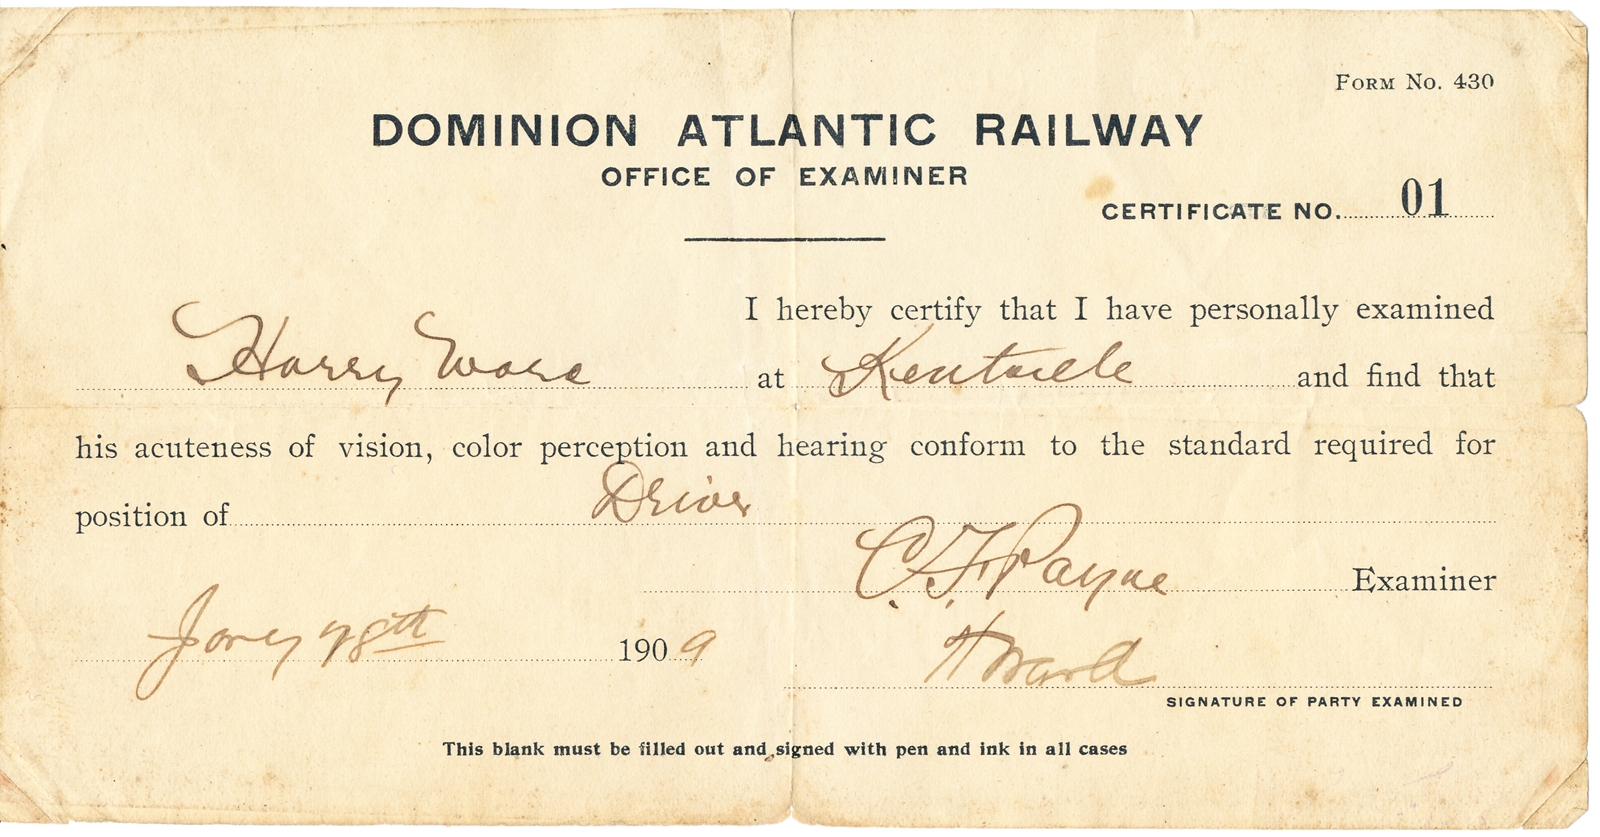 FORM NO. 430
DOMINION ATLANTIC RAILWAY
OFFICE OF EXAMINER
CERTIFICATE NO. 01
I hereby certify that I have personally examined
Harry Ware at Kentville and find that
his acuteness of vision, color perception and hearing conform to the standard required for
position of Driver
C. F. Payne Examiner
28th 1909
H
SIGNATURE OF PARTY EXAMINED
This blank must be filled out and signed with pen and ink in all cases